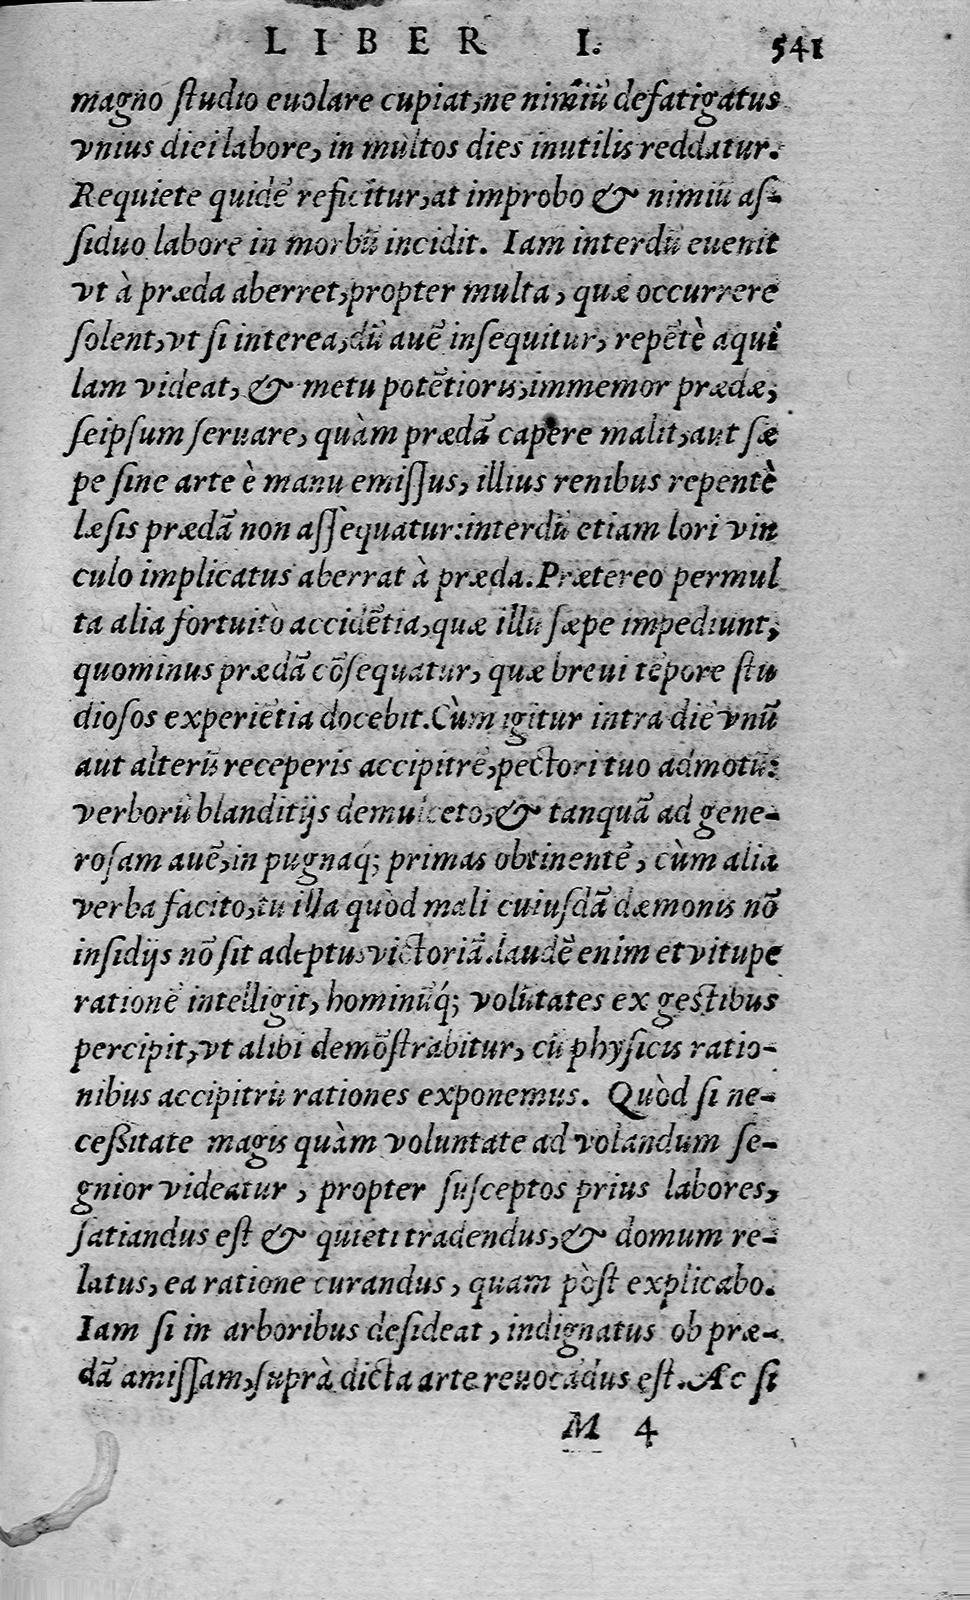 LIBER I. 541
magno ſtudio euolare cupiat, ne nimiũ defatigatus
vnius diei labore, in multos dies inutilis reddatur.
Requiete quidẽ reficitur, at improbo & nimiũ aſ-
ſiduo labore in morbũ incidit. Iam interdũ euenit
vt à præda aberret, propter multa, quæ occurrere
ſolent, vt ſi interea, dũ auẽ inſequitur, repẽtè aqui
lam videat, & metu potẽtioris, immemor prædæ,
ſeipſum ſeruare, quàm prædã capere malit, aut ſæ
pe ſine arte è manu emiſſus, illius renibus repentè
læſis prædã non aſſequatur: interdũ etiam lori vin
culo implicatus aberrat à præda. Prætereo permul
ta alia fortuitò accidẽtia, quæ illũ ſæpe impediunt,
quominus prædã cõſequatur, quæ breui tẽpore ſtu
dioſos experiẽtia docebit. Cùm igitur intra diẽ vnũ
aut alterũ receperis accipitrẽ, pectori tuo admotũ:
verborũ blanditijs demulceto, & tanquã ad gene-
roſam auẽ, in pugnaq́; primas obtinentẽ, cùm alia
verba facito, tu illa quòd mali cuiuſdã dæmonis nõ
inſidijs nõ ſit adeptus victoriã. laudẽ enim et vitupe
rationẽ intelligit, hominũq́; volũtates ex geſtibus
percipit, vt alibi demõſtrabitur, cũ phyſicis ratio-
nibus accipitrũ rationes exponemus. Quòd ſi ne-
ceßitate magis quàm voluntate ad volandum ſe-
gnior videatur, propter ſuſceptos prius labores,
ſatiandus eſt & quieti tradendus, & domum re-
latus, ea ratione curandus, quam pòſt explicabo.
Iam ſi in arboribus deſideat, indignatus ob præ-
dã amiſſam, ſuprà dicta arte reuocãdus eſt. Ac ſi
M 4